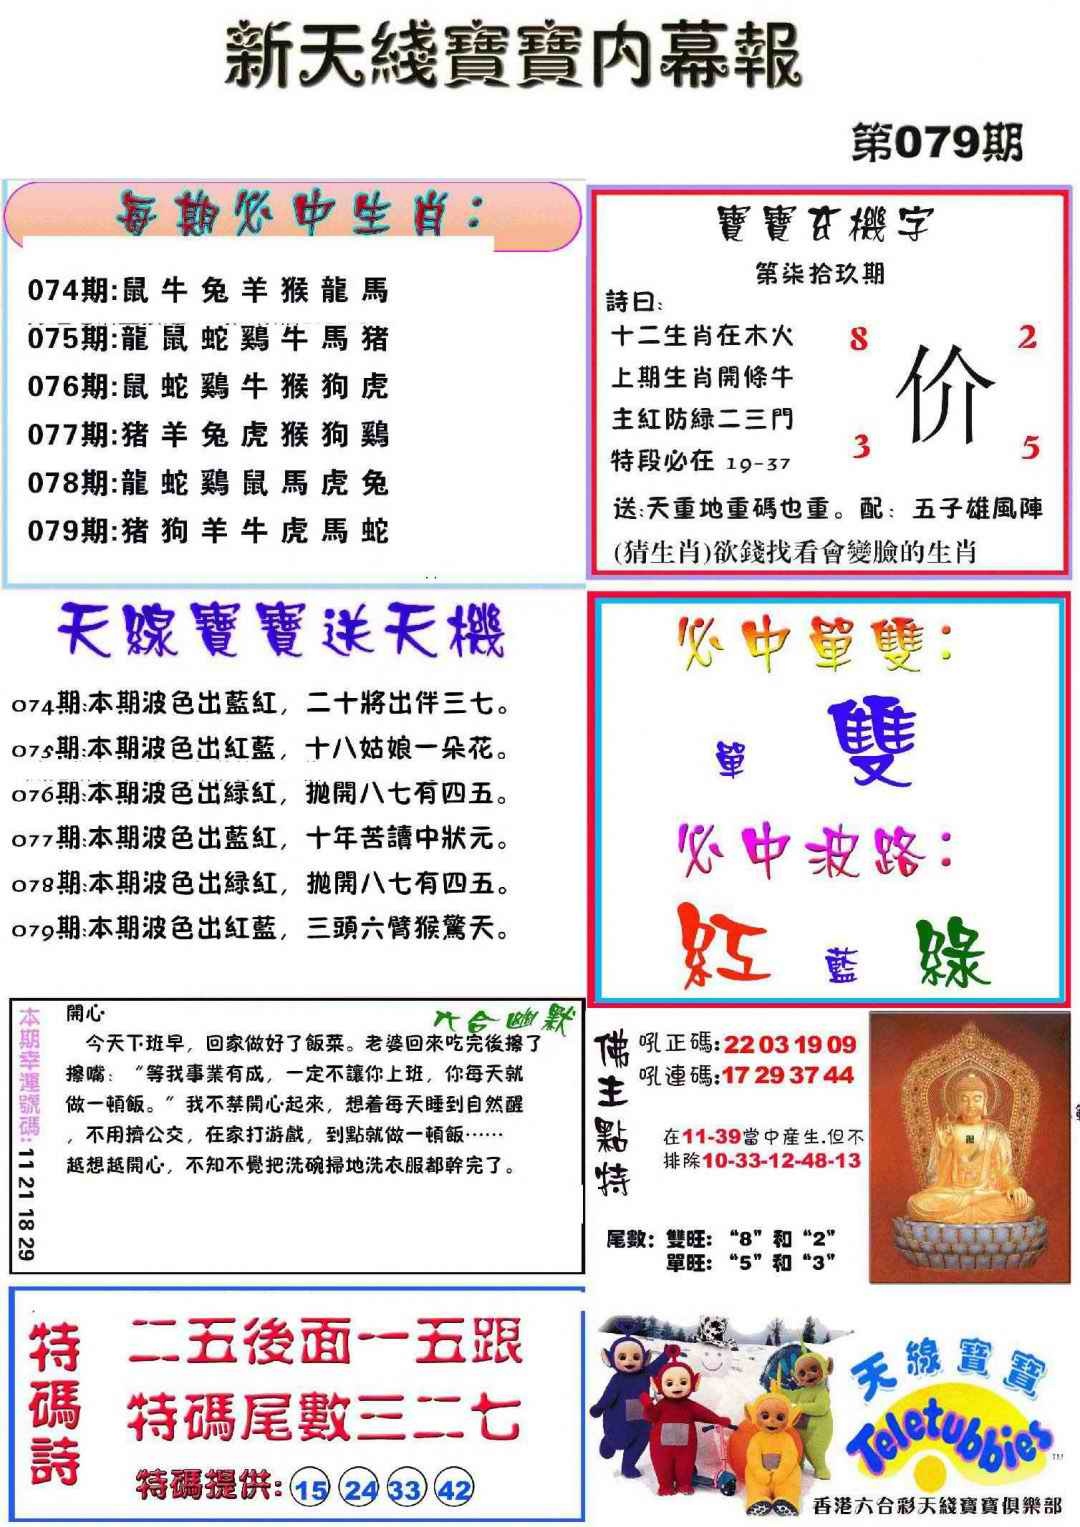 新天綫寶寶内幕報
第079期
每期必中生肖:
074期:鼠 牛 兔 羊 猴 龍 馬
075期:龍 鼠 蛇 鷄 牛 馬 猪
076期:鼠 蛇 鷄 牛 猴 狗 虎
077期:猪 羊 兔 虎 猴 狗 鷄
078期:龍 蛇 鷄 鼠 馬 虎 兔
079期:猪 狗 羊 牛 虎 馬 蛇
寶寶玄機字
第柒拾玖期
詩曰:
十二生肖在木火
上期生肖開條牛
主紅防緑二三門
特段必在 19-37
8 2
价
3 5
送:天重地重碼也重。配: 五子雄風陣
(猜生肖)欲錢找看會變臉的生肖
天線寶寶送天機
074期:本期波色出藍紅, 二十將出伴三七。
075期:本期波色出紅藍, 十八姑娘一朵花。
076期:本期波色出緑紅, 抛開八七有四五。
077期:本期波色出藍紅, 十年苦讀中狀元。
078期:本期波色出緑紅, 抛開八七有四五。
079期:本期波色出紅藍, 三頭六臂猴驚天。
必中單雙:
單 雙
必中波路:
紅 藍 綠
本期幸運號碼: 11 21 18 29
六合幽默
開心
今天下班早, 回家做好了飯菜。老婆回來吃完後擦了
擦嘴: “等我事業有成, 一定不讓你上班, 你每天就
做一頓飯。”我不禁開心起來, 想着每天睡到自然醒
, 不用擠公交, 在家打游戲, 到點就做一頓飯……
越想越開心, 不知不覺把洗碗掃地洗衣服都幹完了。
佛主點特
吼正碼:22 03 19 09
吼連碼:17 29 37 44
在11-39當中産生.但不
排除10-33-12-48-13
尾數: 雙旺: “8”和“2”
單旺: “5”和“3”
特碼詩
二五後面一五跟
特碼尾數三二七
特碼提供: 15 24 33 42
天線寶寶
Teletubbies TM
香港六合彩天綫寶寶俱樂部